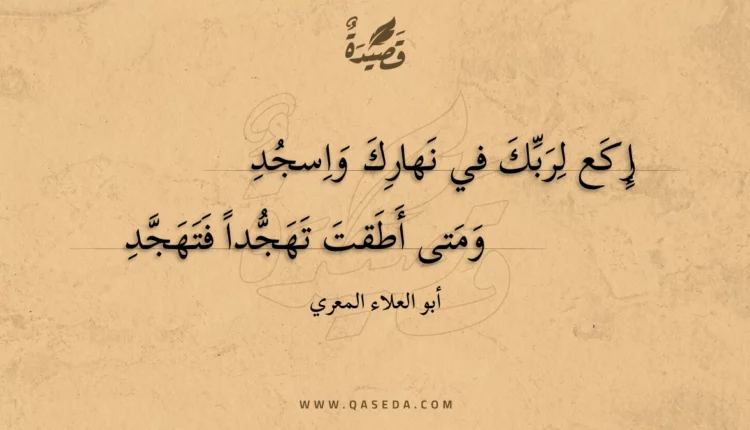 قَصِيدَةٌ
إِكَع لِرَبِّكَ في نَهارِكَ وَاِسجُدِ
وَمَتى أَطَقتَ تَهَجُّداً فَتَهَجَّدِ
أبو العلاء المعري
WWW.QASEDA.COM